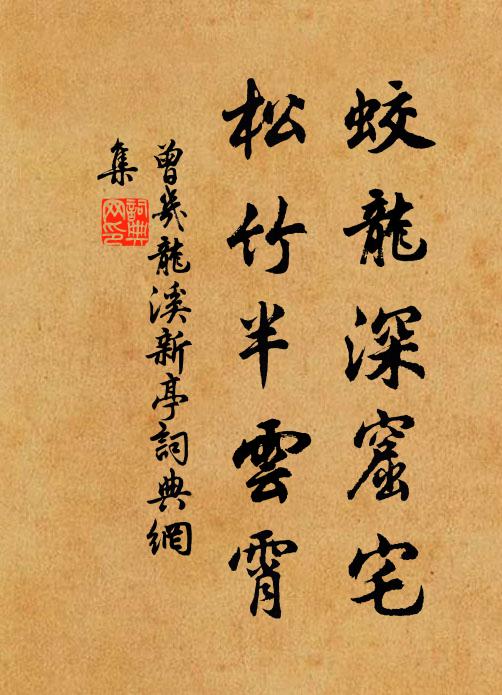 蛟龍深窟宅
松竹半雲霄
曾幾龍溪新亭詞典網
集
詞典網印